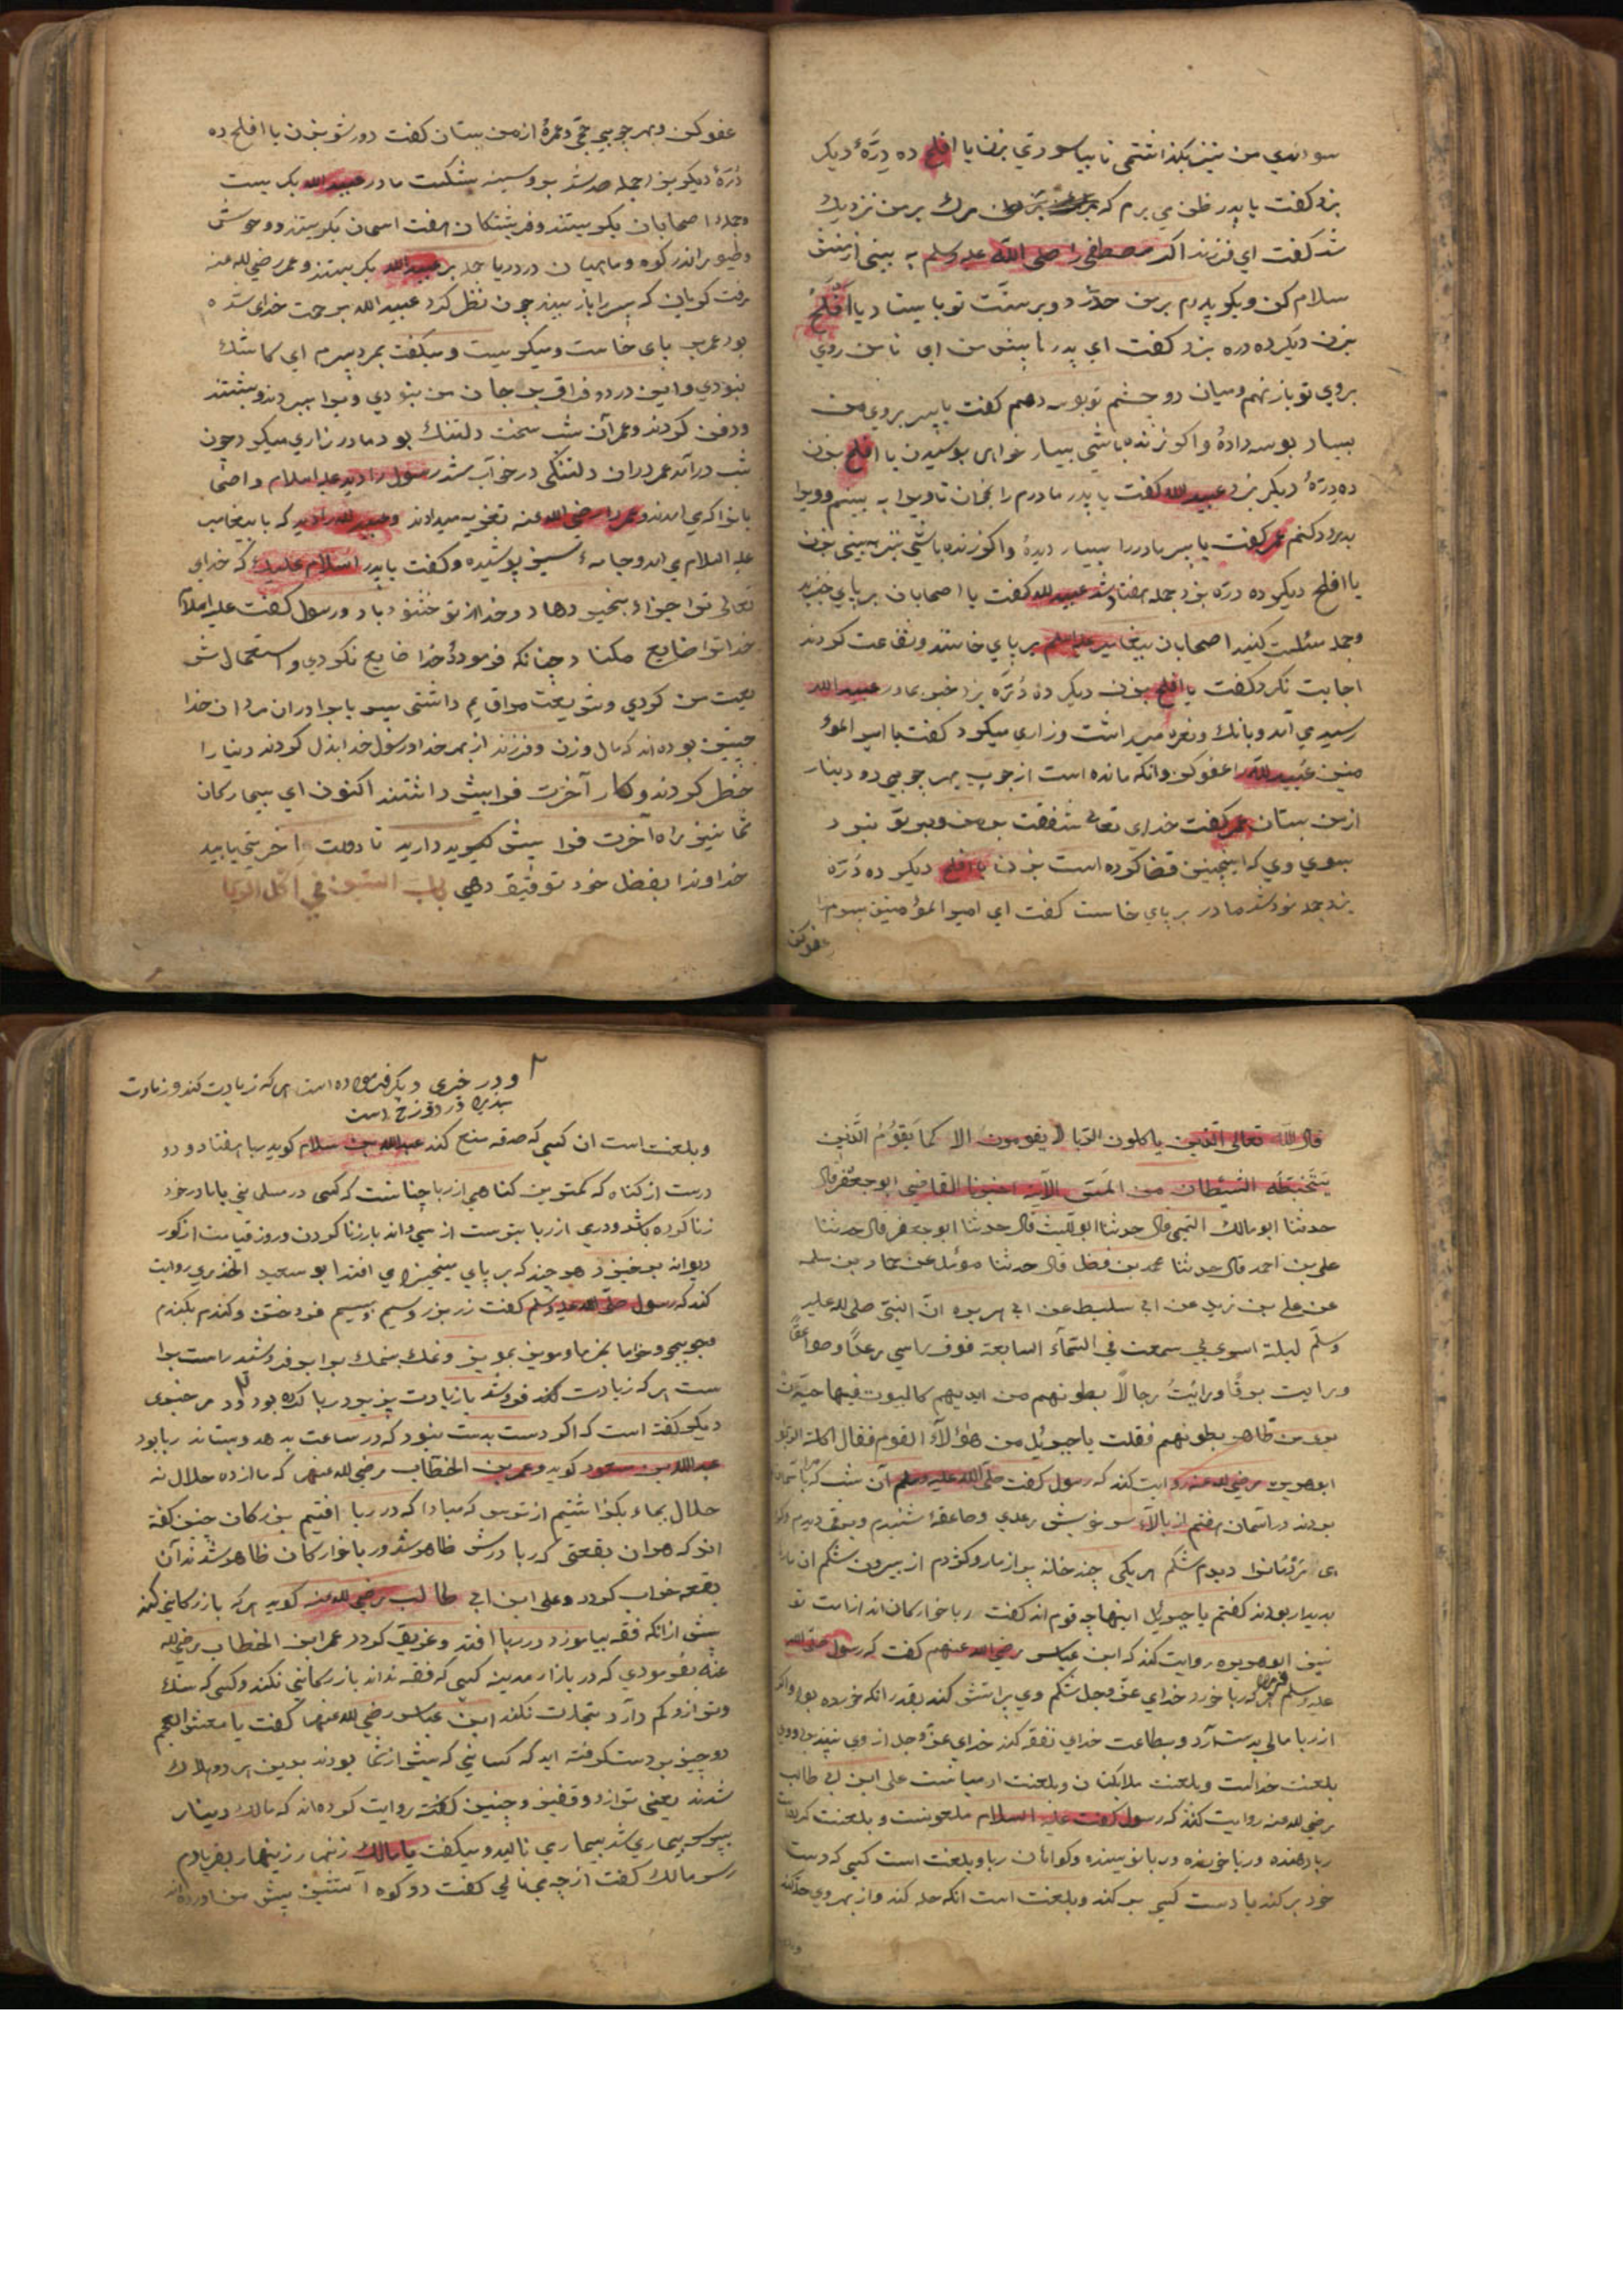 سوانمدي من نيز بگذاشتمي تا بياسودتي بزن يا افلح ده درّهٔ ديكر
بزد كفت يا پدر ظن مي برم كه مرك بر من نزديك
شد كفت اي فرزند اكر مصطفي را صلى الله عليه وسلم به بيني از منش
سلام كن وبكو پدرم بر من حد زد وبر سنّت تو بايستاد يا افلح
بزن ديكر ده دره بزد كفت اي پدر تا پيش من اي تا من روي
بروي تو باز نهم وميان دو چشم تو بوسه دهم كفت يا پسر بروي من
بسيار بوسه دادهٔ واكر زنده باشي بسيار خواهي بوسيدن يا افلح بزن
ده درّهٔ ديكر بزد عبيد الله كفت يا پدر مادرم را بخوان تا ويرا به بينم وويرا
بدرود كنم عمر كفت يا پسر مادر را بسيار ديدهٔ واكر زنده باشي نيز به بيني بزن
يا افلح ديكر ده درّه بزد جمله هفتاد شد عبيد الله كفت يا اصحابان بر پاي خيزيد
وجمله مسئلت كنيد اصحابان پيغامبر عليه السلم بر پاي خاستند وشفاعت كردند
اجابت نكرد كفت يا افلح بزن ديكر ده دُرّه بزد خبر بمادر عبيد الله
رسيد مي آمد وبانك ونعره ميداشت وزاري ميكرد كفت يا امير المؤ
منين عبيد الله را عفو كن وانكه مانده است از چوب بهر چوبي دو دينار
از من بستان عمر كفت خداي تعالى شفقت بر من وبر تو نبود
بسوي وي كه اينچنين قضا كرده است بزن يا افلح ديكر ده دُرّه
بزد جمله نود شد مادر بر پاي خاست كفت اي امير المؤمنين پسرم را
عفو كن
عفو كن وبهر چوبي حجّي وعمرهٔ از من بستان كفت دور شو بزن يا افلح ده
دُرّهٔ ديكر بزد جمله صد شد بر وسينه بشكست مادر عبيد الله بكريست
وجملهٔ اصحابان بكريستند وفريشتكان هفت اسمان بكريستند ووحوش
وطيور اندر كوه وماهيان در دريا جمله بر عبيد الله بكريستند وعمر رضي الله عنه
برفت كويان كه پسر را باز بيند چون نظر كرد عبيد الله برحمت خداي شده
بود عمر بر پاي خاست وميكريست وميكفت بمرد پسرم اي كاشك
نبودي واين درد وفراق بر جان من نبودي ويرا ببردند وبشستند
ودفن كردند وعمر آن شب سخت دلتنك بود ومادر زاري ميكرد چون
شب درآمد عمر در ان دلتنكي در خواب شد رسول را ديد عليه السلام واصحا
بانرا كه مي امدند وعمر را رضي الله عنه تعزيه ميدادند وعبيد الله را ديد كه با پيغامبر
عليه السلام مي امد وجامهٔ سبز پوشيده وكفت يا پدر السلام عليك كه خداي
تعالى ترا جزاء بخير دهاد وخدا از تو خشنود باد ورسول كفت عليه السلام
خدا ترا ضايع مكناد چنانكه فرمودهٔ خدا ضايع نكردي واستعمال ش
ريعت من كردي وشريعت مرا قيم داشتي پس يا برادران مردان خدا
چنين بوده اند كه مال وزن وفرزند از بهر خدا ورسول خدا بذل كردند دنيا را
خطر كردند وكار آخرت فرا پيش داشتند اكنون اي بيماركان
شما نيز راه آخرت فرا پيش كيريد وداريد تا دولت اخرت بيابيد
خداوندا بفضل خود توفيق دهي باب الستون في اكل الربا
قال الله تعالى الذين ياكلون الربا لا يقومون الا كما يَقوُمُ الَّذِي
يَتَخَبَّطُه الشَيْطان من المَسّ الآية اخبرنا القاضي ابو جعفر قال
حدثنا ابو مالك التميمي قال حدثنا ابو الليث قال حدثنا ابو جعفر قال حدثنا
على بن احمد قال حدثنا محمد بن فضل قال حدثنا مؤمل عن حماد بن سلمه
عن على بن زيد عن ابي سليط عن ابي هريره انّ النبيّ صلى الله عليه
وسلّم ليلة اسري بي سمعت في السّمآء السابعة فوق راسي رعدًا وصواعقًا
ورايت برقًا ورايتُ رجالًا بطونهم من ايديهم كالبيوت فيها حيّات
ترى من ظاهر بطونهم فقلت يا جبرئيل من هؤلآء القوم فقال اكلة الربوا
ابو هريره رضي الله عنه روايت كند كه رسول كفت صلى الله عليه وسلم آن شب كه مرا باسمان
بودند در آسمان هفتم از بالاء سر خويش رعدي وصاعقهٔ شنيدم وبرقي ديدم
مردمانرا ديدم شكم هر يكي چند خانه پر از مار وكژدم از بيرون شكم ان
پديدار بودند كفتم يا جبرئيل اينها چه قوم اند كفت ربا خواركان اند از امت تو
نيز ابو هريره روايت كند كه ابن عباس رضي الله عنهم كفت كه رسول صلى الله
عليه وسلم هركه ربا خورد خداي عزّ وجل شكم وي پر اتش كند بقدر انكه خورده بود واكر
از ربا مالي بدست آرد وبطاعت خداي نفقه كند خداي عزّ وجل از وي نپذيرد ووي
بلعنت خداست وبلعنت ملائكتان وبلعنت ادميانست على ابن ابي طالب
رضي الله عنه روايت كند كه رسول كفت عليه السلام ملعونست وبلعنت
ربا دهنده وربا خورنده وربا نويسنده وكواهان ربا وبلعنت است كسي كه دست
خود بر كند يا دست كسي بر كند وبلعنت است انكه حله كند واز بهر وي حله كنند
ودر خبري ديكر فرموده است هر كه زيادت كند وزيادت
پذيرد در دوزخ است
وبلعنت است ان كسي كه صدقه منع كند عبد الله بن سلام كويد ربا هفتاد ودو
درست از كناه كه كمترين كناهي از ربا چنانست كه كسي در مسلماني با مادر خود
زنا كرده باشد ودرمي از ربا بترست از سي واند بار زنا كردن وروز قيامت از كور
ديوانه برخيزد هرچند كه بر پاي ميخيزد مي افتد ابو سعيد الخدري روايت
كند كه رسول صلى الله عليه وسلم كفت زر بزر وسيم بسيم فروختن وكندم بكندم
وجو بجو وخرما بخرما ومويز بمويز ونمك بنمك برابر فروشند راست برا
ست هر كه زيادت كند فروشد يا زيادت پذيرد ربا كرده بود ودر خبري
ديكر كفته است كه اكر دست بدست نبود كه در ساعت بدهد وبستاند ربا بود
عبد الله بن مسعود كويد وعمر بن الخطاب رضي الله عنهم كه ما از ده حلال نه
حلال بماء بكذاشتيم از ترس كه مبادا كه در ربا افتيم بزركان چنين كفته
اند كه هران بقعتي كه ربا درش ظاهر شد وربا خواركان ظاهر شدند آن
بقعه خراب كردد وعلى ابن ابي طالب رضي الله عنه كويد هر كه بازركاني كند
پيش ازانكه فقه بياموزد در ربا افتد وغريق كردد عمر ابن الخطاب رضي الله
عنه بفرمودي كه در بازار مدينه كسي كه فقه نداند بازركاني نكند وكسي كه سنك
وترازو كم دارد تجارت نكند ابن عباس رضي الله عنهما كفت يا معشر العجم
دو چيز بدست كرفته ايد كه كساني كه پيش از شما بودند بدين هر دو هلاك
شدند يعني ترازو وقفيز وچنين كفته روايت كرده اند كه مالك دينار
بپرسه بيماري شد بيمار مي ناليد وميكفت يا مالك زنهار زينهار بفريادم
رس مالك كفت از چه مي نالي كفت دو كوه آتشين پيش من اورده اند